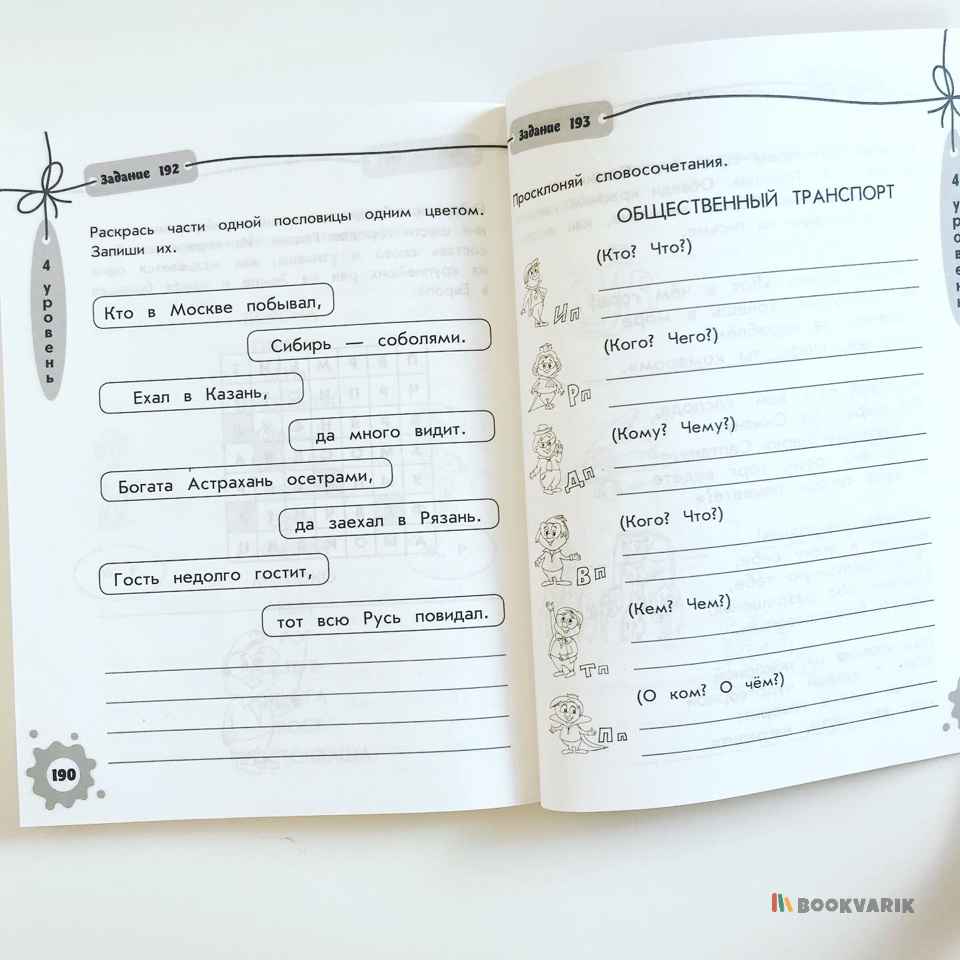 Задание 192
Раскрась части одной пословицы одним цветом.
Запиши их.
4 уровень
Кто в Москве побывал,
Сибирь — соболями.
Ехал в Казань,
да много видит.
Богата Астрахань осетрами,
да заехал в Рязань.
Гость недолго гостит,
тот всю Русь повидал.
190
Задание 193
Просклоняй словосочетания.
ОБЩЕСТВЕННЫЙ ТРАНСПОРТ
(Кто? Что?)
Ип
(Кого? Чего?)
Рп
(Кому? Чему?)
Дп
(Кого? Что?)
Вп
(Кем? Чем?)
Тп
(О ком? О чём?)
Пп
BOOKVARIK